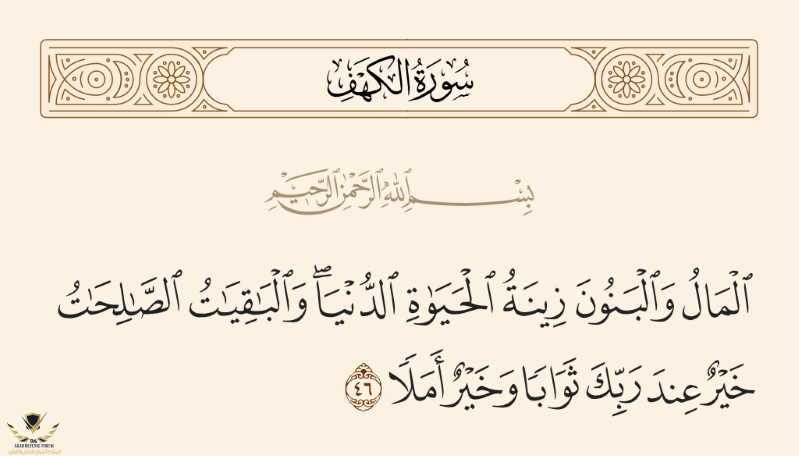 سُورَةُ الكَهْفِ
بِسْمِ ٱللَّهِ ٱلرَّحْمَٰنِ ٱلرَّحِيمِ
ٱلْمَالُ وَٱلْبَنُونَ زِينَةُ ٱلْحَيَوٰةِ ٱلدُّنْيَاۖ وَٱلْبَٰقِيَٰتُ ٱلصَّٰلِحَٰتُ
خَيْرٌ عِندَ رَبِّكَ ثَوَابًا وَخَيْرٌ أَمَلًا ٤٦
ARAB DEFENSE FORUM